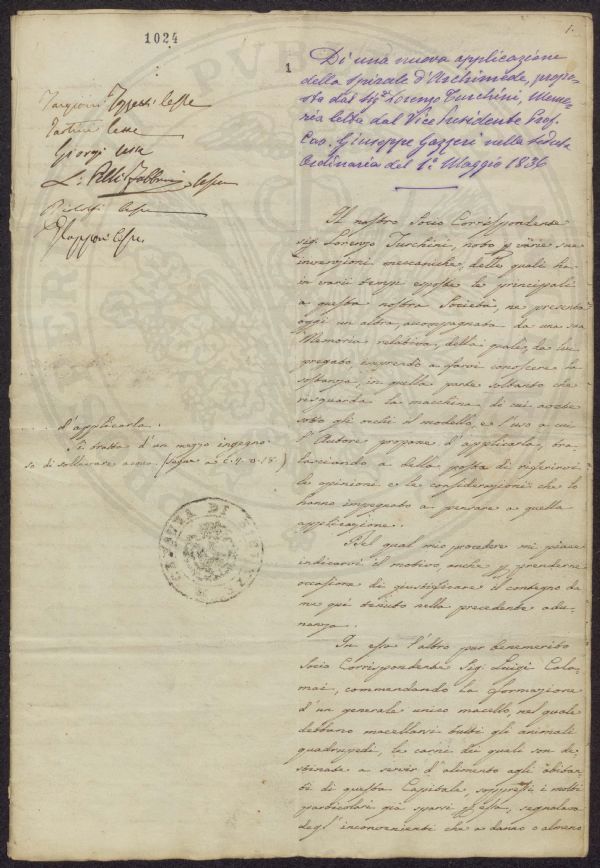 1024
1.
1
Di una nuova applicazione
della spirale d'Archimede, propo-
sto dal Sigr. Lorenzo Turchini, Memo-
ria letta dal Vice Presidente Prof.
Cav. Giuseppe Gazzeri nella seduta
Ordinaria del 1º. Maggio 1836
Targioni Tozzetti lesse
lesse
Giorgi lesse
lesse
Ridolfi lesse
lesse
Il nostro Socio Corrispondente
sig. Lorenzo Turchini, noto p varie sue
invenzioni meccaniche, delle quali ha
in varii tempi esposte le principali
a questa nostra Società, ne presenta
oggi un altra, accompagnata da una sua
Memoria relativa, della quale, da lui
pregato imprendo a farvi conoscere la
sostanza, in quella parte soltanto che
risguarda la macchina di cui avete
sotto gli occhi il modello, e l'uso a cui
l'Autore propone d'applicarla, tra-
lasciando a bella posta di riferirvi
le opinioni e le considerazioni che lo
hanno impegnato a pensare a quella
applicazione.
d'applicarla.
Si tratta d'un mezzo ingegno-
so di sollevare acqua. (segue a C.
Del qual mio procedere mi piace
indicarvi il motivo, anche p prenderne
occasione di giustificare il contegno da
me qui tenuto nella precedente adu-
nanza.
In essa l'altro pur benemerito
Socio Corrispondente Sig. Luigi Cala-
mai, commendando la formazione
d'un generale unico macello, nel quale
debbano macellarsi tutti gli animali
quadrupedi, le carni dei quali son de-
stinate a servir d'alimento agli abitan-
ti di questa Capitale, soppressi i molti
particolari già sparsi p essa, segnalava
degl'inconvenienti che a danno o almeno